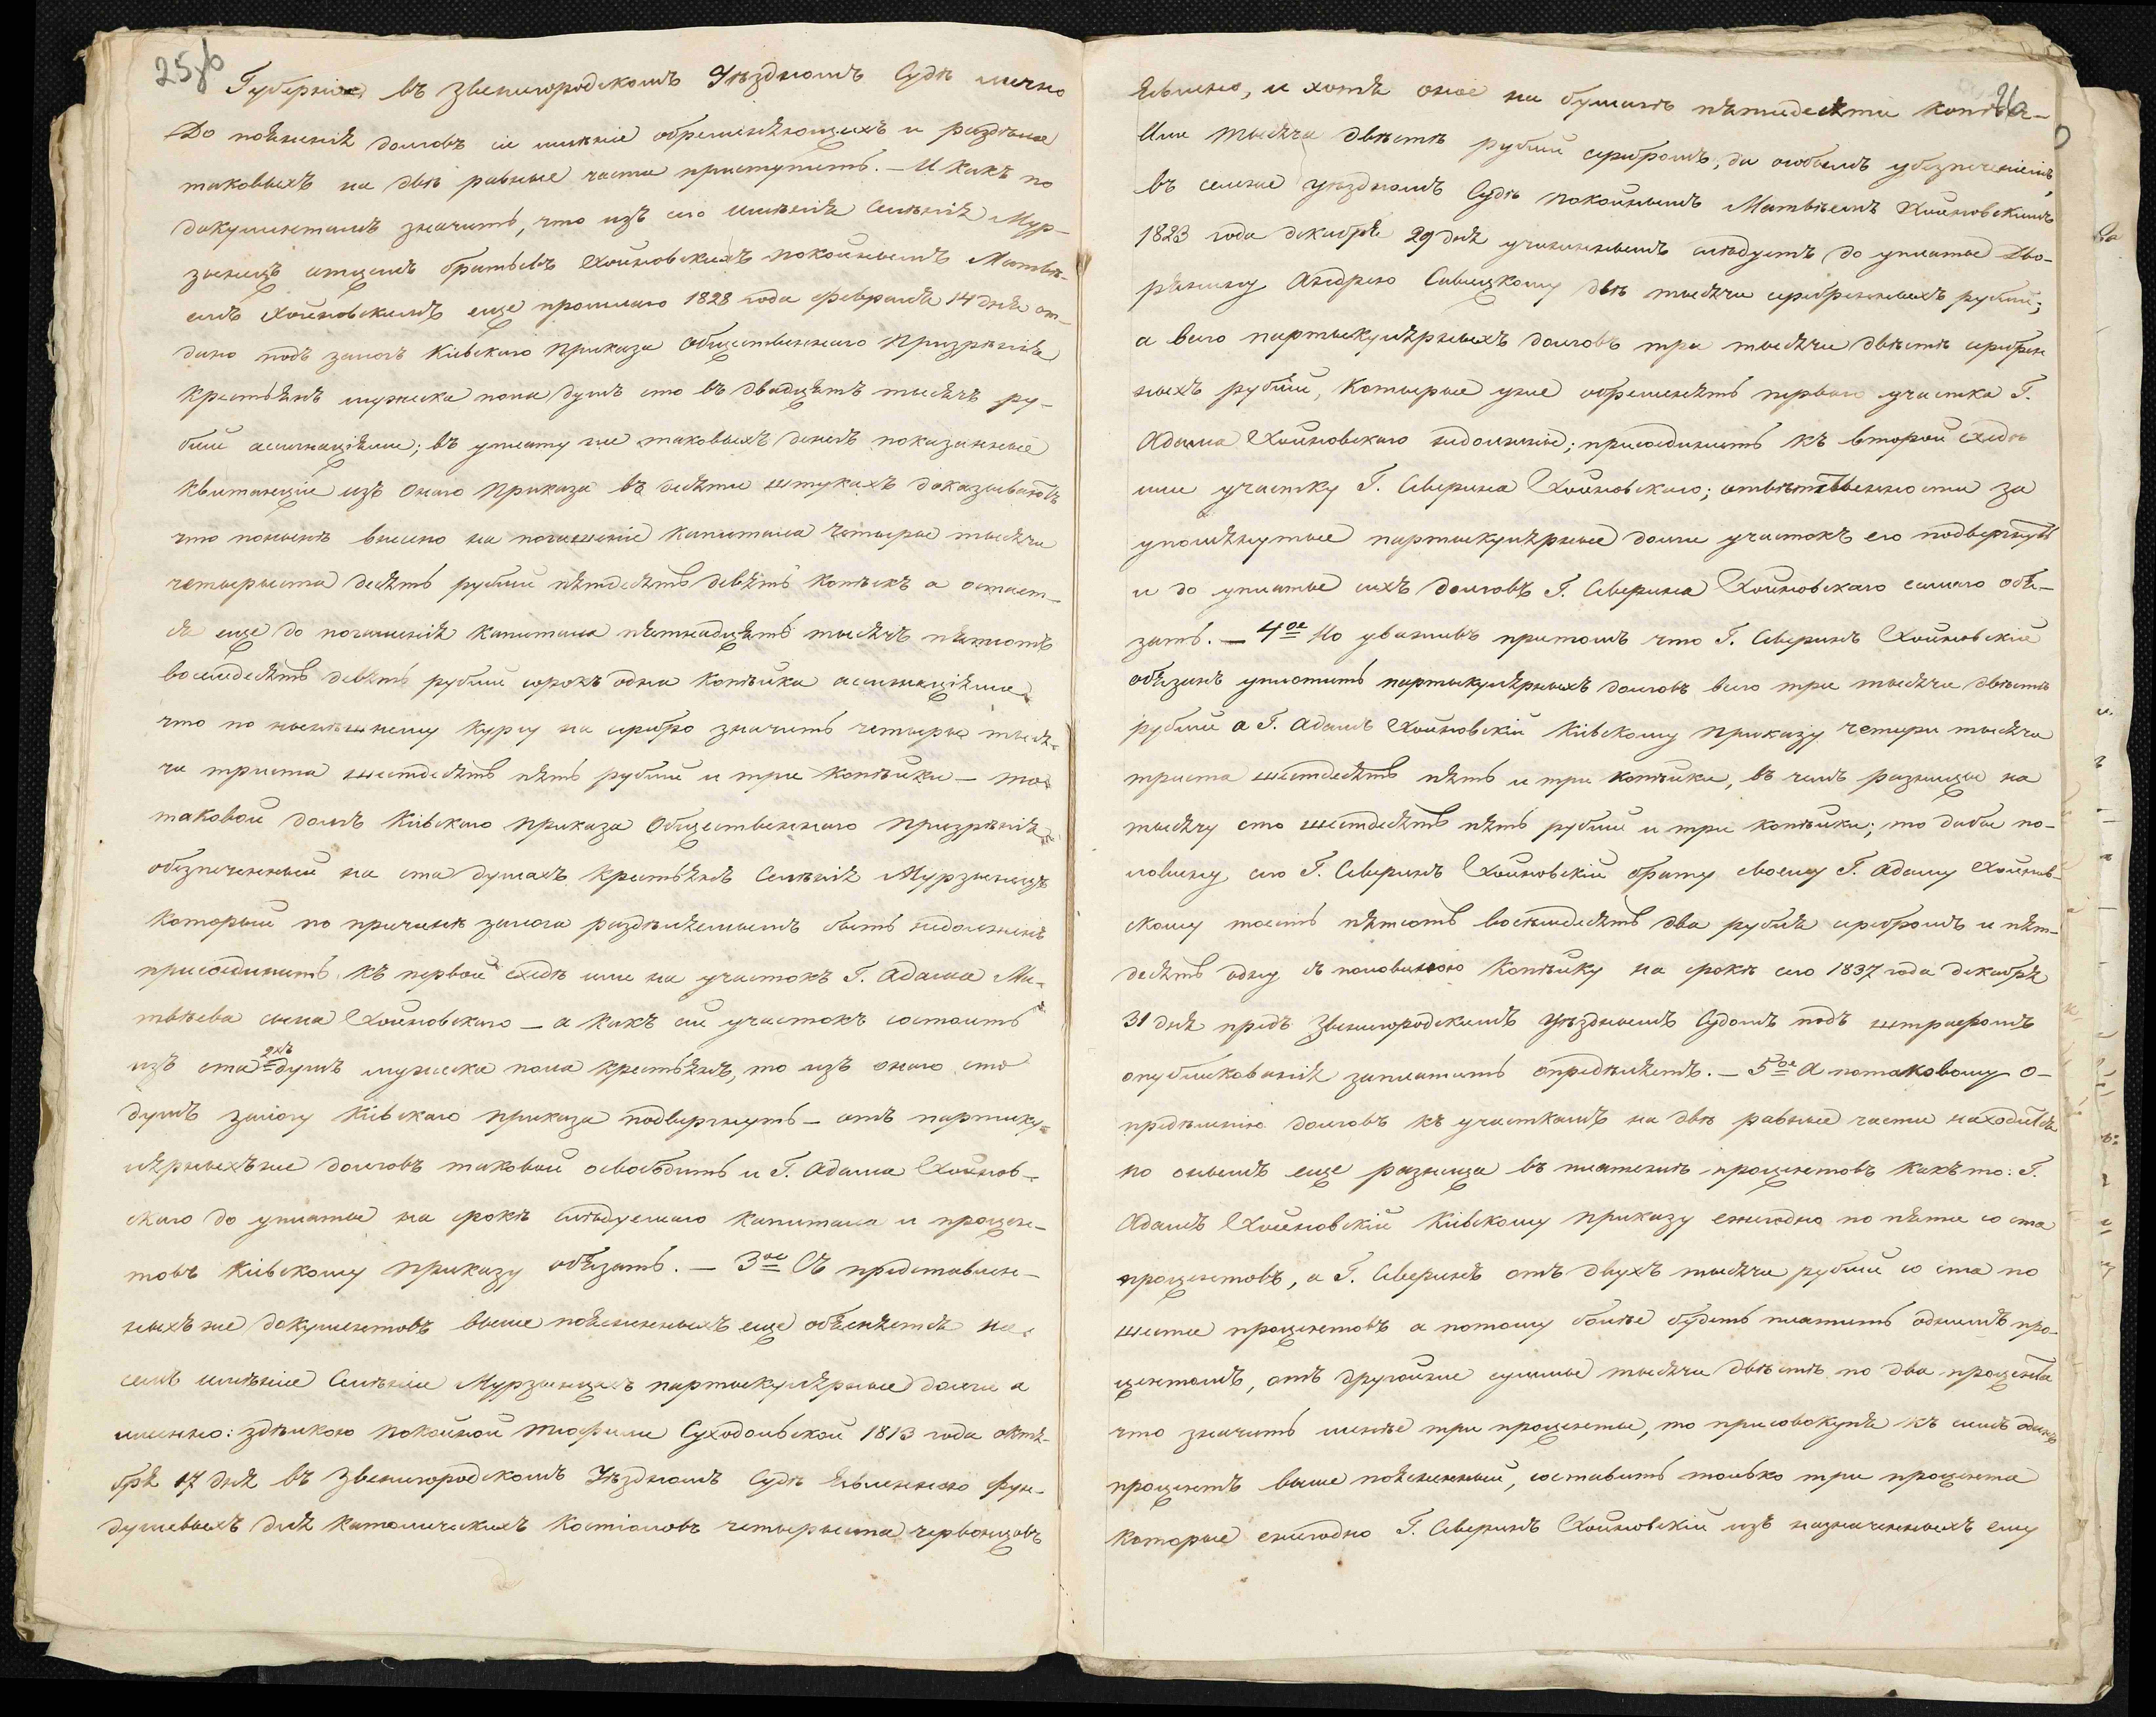 25 об
Губерніи въ Звенигородскомъ Уѣздномъ Судѣ лично
До поясненія долговъ сіе имѣніе обременяющихъ и раздѣлъ
таковыхъ на двѣ равные части приступить. — И какъ по
документамъ значитъ, что изъ сего имѣнія Селенія Мур-
зинецъ отцемъ братьевъ Хойновскихъ покойнымъ Матвѣ-
емъ Хойновскимъ еще прошлаго 1828 года февраля 14 дня от-
дано подъ залогъ Кіевскаго Приказа Общественнаго Призрѣнія
крестьянъ мужеска пола душъ сто въ двадцать тысячъ ру-
блей ассигнаціями; въ уплату же таковыхъ денегъ показанные
квитанціи изъ онаго Приказа въ десяти штукахъ доказываютъ
что понынѣ внесено на погашеніе капитала четыре тысячи
четыреста десять рублей пятдесятъ девять копѣекъ а остает-
ся еще до погашенія капитала пятнадцять тысячъ пятсотъ
восемдесятъ девять рублей сорокъ одна копѣйка ассигнаціями
что по нынѣшнему курсу на серебро значитъ четыре тыся-
чи триста шестдесятъ пять рублей и три копѣйки — то
таковой долгъ Кіевскаго Приказа Общественнаго Призрѣнія
обезпеченный на ста душахъ крестьянъ Селенія Мурзинецъ
который по причинѣ залога раздѣляемымъ быть недолженъ
присоединить къ первой схедѣ или на участокъ Г. Адама Ма-
твѣева сына Хойновскаго — а какъ сей участокъ состоитъ
изъ ста 2хъ душъ мужеска пола крестьянъ, то изъ онаго сто
душъ залогу Кіевскаго Приказа подвергнуть — отъ партику-
лярныхъ же долговъ таковой освободить и Г. Адама Хойнов-
скаго до уплаты на срокѣ слѣдуемаго капитала и процен-
товъ Кіевскому Приказу обязать. — 3ое Съ представлен-
ныхъ же документовъ выше поясненныхъ еще объясняется на
семъ имѣніи Селеніи Мурзинцахъ партыкулярные долги а
именно: здѣлкою покойной Теофили Суходольской 1813 года октя-
бря 17 дня въ Звенигородскомъ Уѣздномъ Судѣ явленною фун-
душевыхъ для католическихъ костіоловъ четыреста червонцовъ
26
явлено, и хотя оное на бумагѣ пятидесяти копѣеч-
или тысяча двѣстѣ рублей серебромъ, да особымъ убезпеченіемъ,
въ семже уѣздномъ Судѣ покойнымъ Матвѣемъ Хойновскимъ
1823 года декабря 29 дня учиненнымъ слѣдуетъ до уплаты Дво-
рянину Андрею Савицкому двѣ тысячи серебренныхъ рублей;
а всего партыкулярныхъ долговъ три тысячи двѣстѣ серебрен
ныхъ рублей, которые уже обременять перваго участка Г.
Адама Хойновскаго недолжны; присоединить къ второй схедѣ
или участку Г. Северина Хойновскаго; отвѣтственности за
упомянутые партыкулярные долги участокъ его подвергнуть
и до уплаты сихъ долговъ Г. Северина Хойновскаго самаго обя-
зать. — 4ое Но уваживъ притомъ что Г. Северинъ Хойновскій
обязанъ уплотить партыкулярныхъ долговъ всего три тысячи двѣстѣ
рублей а Г. Адамъ Хойновскій Кіевскому Приказу четыри тысячи
триста шестдесятъ пять и три копѣйки, въ чемъ разницы на
тысячу сто шестдесятъ пять рублей и три копѣйки; то дабы по-
ловину сего Г. Северинъ Хойновскій брату своему Г. Адаму Хойнов-
скому тоесть пятсотъ восѣмдесятъ два рубля серебромъ и пят-
десятъ одну съ половиною копѣйку на срокѣ сего 1837 года декабря
31 дня предъ Звенигородскимъ Уѣзднымъ Судомъ подъ штрафомъ
опубликованія заплатить опредѣляетъ. — 5ое А потаковому о-
предѣленію долговъ къ участкамъ на двѣ равные части находится
по онымъ еще разница въ платежѣ процентовъ какъ то: Г.
Адамъ Хойновскій Кіевскому Приказу ежегодно по пяти со ста
процентовъ, а Г. Северинъ отъ двухъ тысячи рублей со ста по
шесты процентовъ а потому болѣе будетъ платить однимъ про-
центомъ, отъ другойже суммы тысячи двѣстѣ по два процента
что значитъ менѣе три проценты, то присовокупя къ симъ одинъ
процентъ выше поясненный, составитъ только три процента
которые ежегодно Г. Северинъ Хойновскій изъ назначенныхъ ему